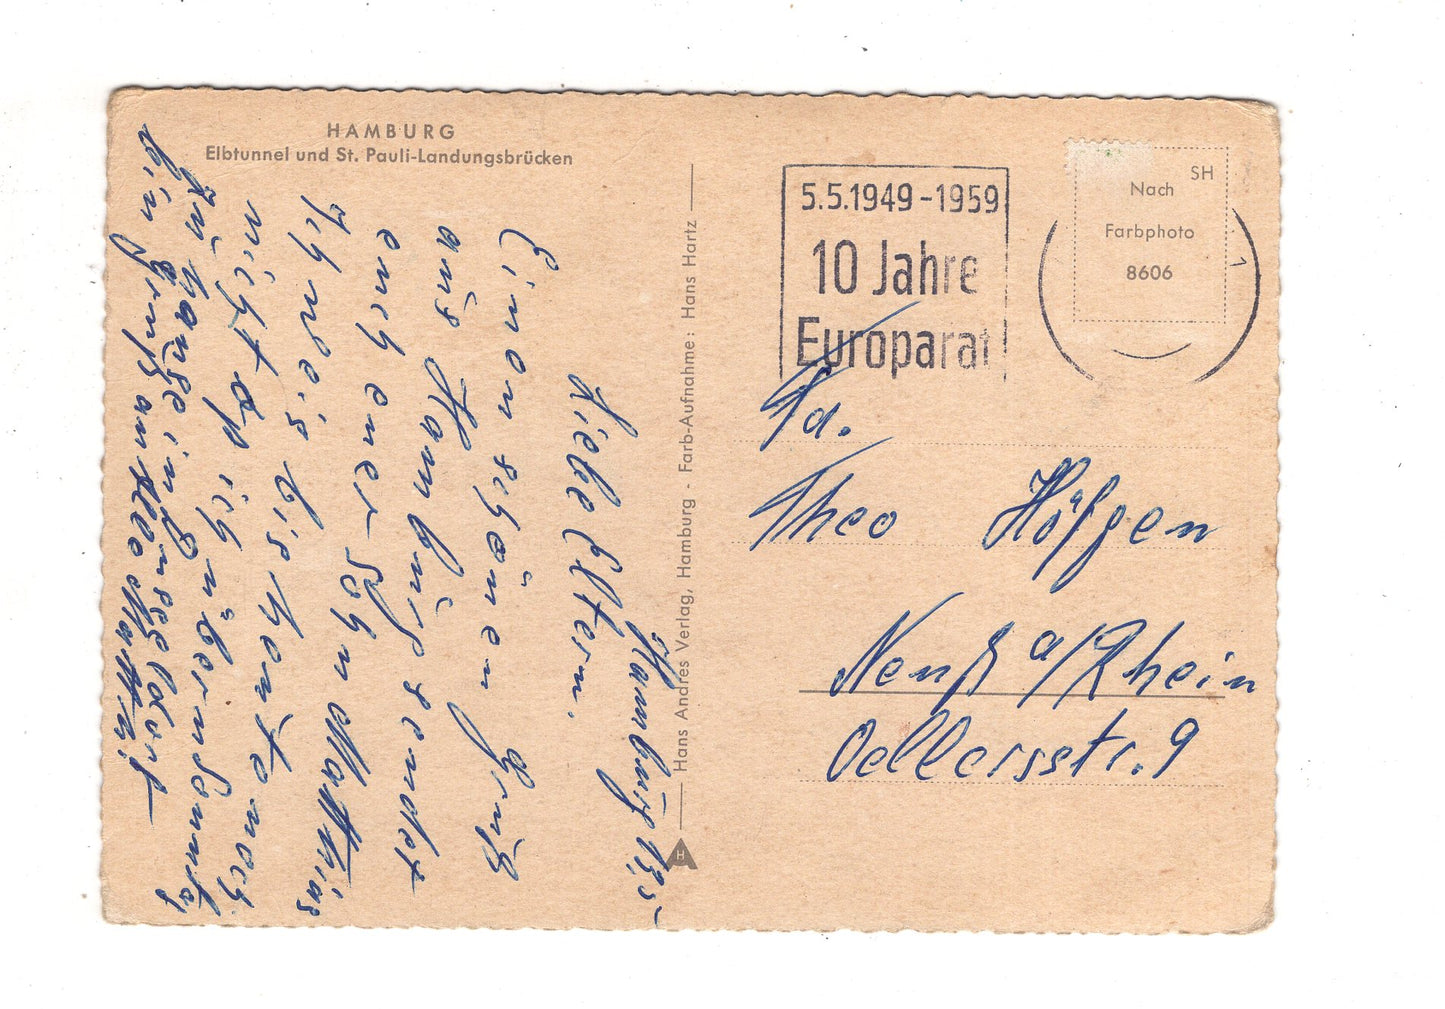 HAMBURG
Elbtunnel und St. Pauli-Landungsbrücken
Hamburg 13,5
Liebe Eltern.
Einen schönen Gruß
aus Hamburg sendet
euch euer Sohn Matthias
Ich weis bis heute noch
nicht op ich über Sonntag
zu hause in
bin Gruß an alle Matth.
Hans Andres Verlag, Hamburg - Farb-Aufnahme: Hans Hartz
H
5.5.1949-1959
10 Jahre
Europarat
SH
Nach
Farbphoto
8606
Fa.
Theo Höfgen
Neuß a/Rhein
Oellersstr. 9